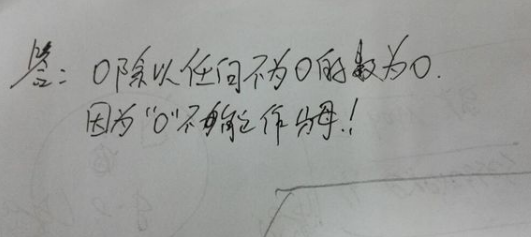 答：0除以任何不为0的数为0.
因为"0"不能作分母！